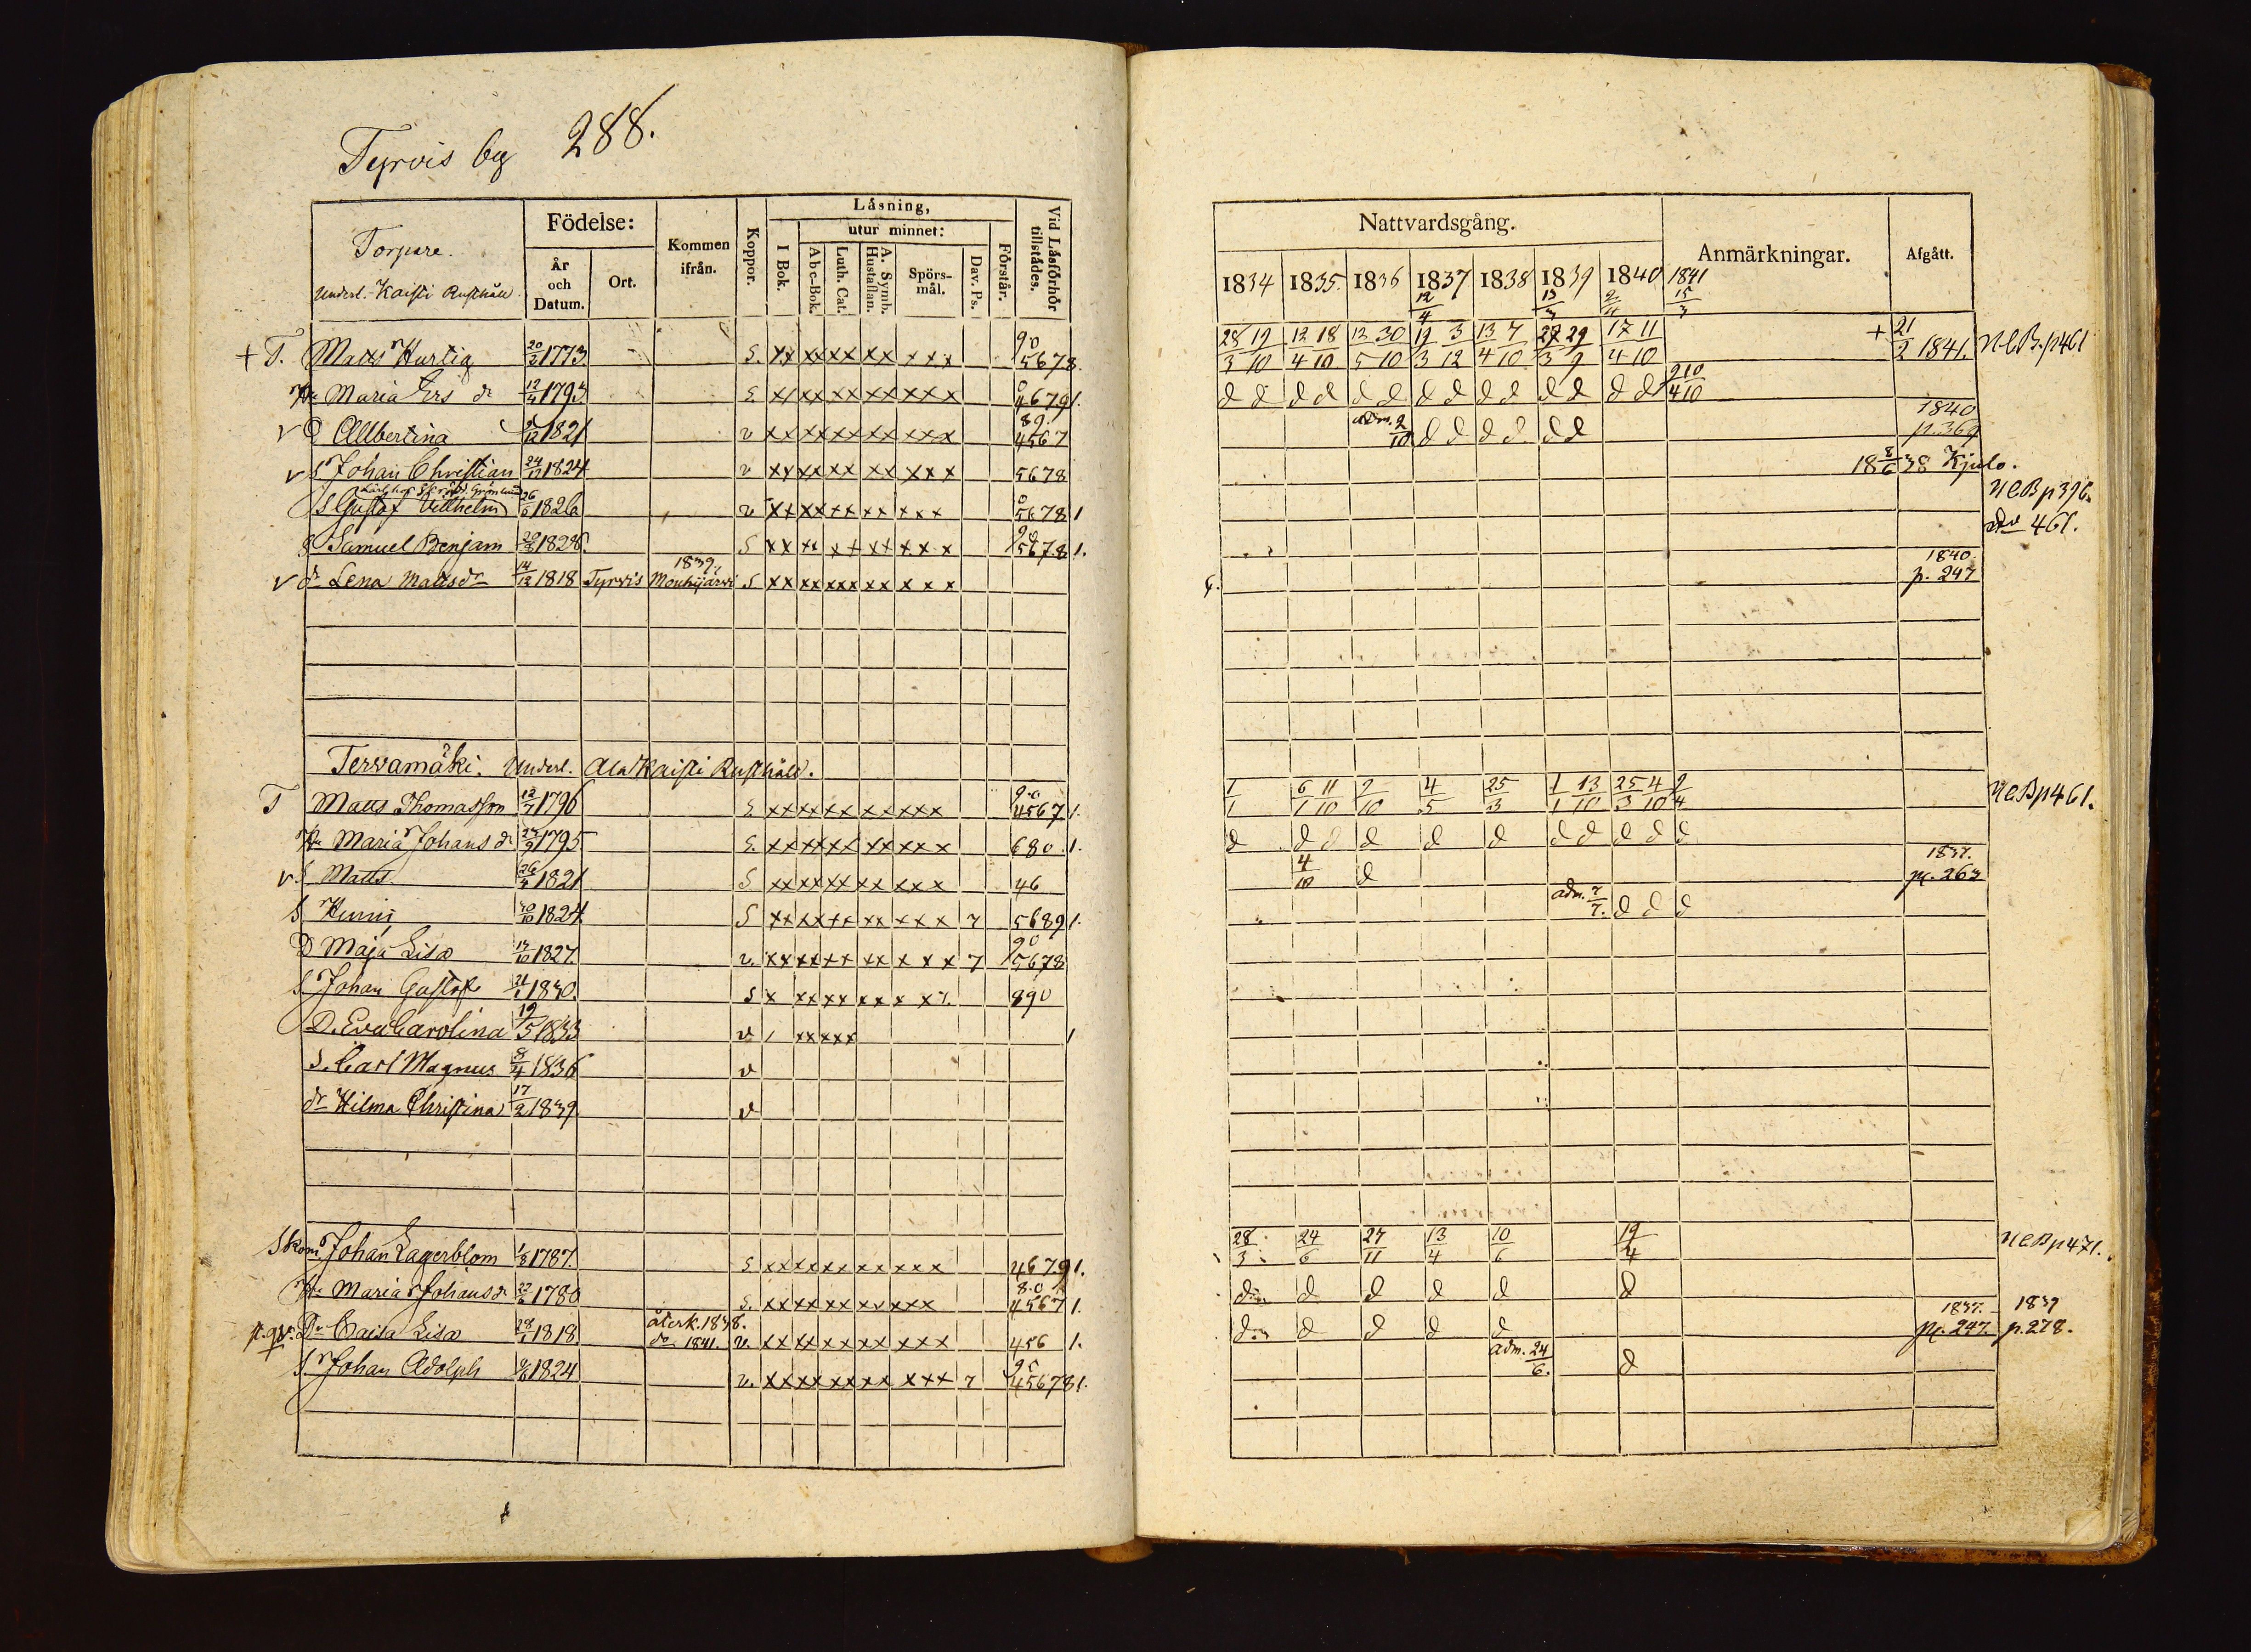 Tyrvis by 288.
Torpare.
Underl. Kaisti Rusthåll
Födelse:
År och Datum.
Ort.
Kommen ifrån.
Koppor.
Låsning,
utur minnet:
I Bok.
Abc-Bok.
Luth. Cat.
A. Symb. Hustaflan.
Spörs-mål.
Dav. Ps.
Förstår.
Vid Låsförhör tillstådes.
+ T. Matts Hurtig 20/2 1773 S. xx xx xx xx xxx 90 5678.
Hu Maria Ers dr 12/4 1793 S. xx xx xx xx xxx 0 4679 1.
v D Allbertina 1821 v xx xx xx xx xxx 89. 4567
v S Johan Christian 24/12 1824 v xx xx xx xx xxx 5678
S Gustaf Villhelm 26/6 1826 v xx xx xx xx xxx 0 5678 1
S Samuel Benjam 1828. S xx xx xx xx xxx 90 5678 1.
v dr Lena Mattsdr 14/12 1818 Tyrvis 1839 Mouhijärvi S xx xx xxx xx xxx
Tervamäki. Underl. Ala Kaisti Rusthåll.
T Matts Thomasson 12/7 1796 S. xx xx xx xx xxx 90 4567 1.
Hu Maria Johans dr 1795 S. xx xx xx xx xxx 680. 1.
v. S Matts. 26/4 1821 S xx xx xx xx xxx 46
S Henric 30/10 1824 S xx xx xx xx xxx 7 5689 1.
D Maja Lisa 13/10 1827. v. xx xx xx xx xxx 7 90 5678
S Johan Gustaf 21/1 1830. S x xx xx xx x x7. 890
D. Eva Carolina 19/5 1833 v / xx xxx 1
S. Carl Magnus 8/4 1836 v
dr Hilma Christina 17/2 1839 v
Skom Johan Lagerblom 1/8 1787. S xx xx xx xx xxx 4679 1.
Hu Maria Johans dr 1780 S. xx xx xx xx xxx 80 4567 1.
Dr Caisa Lisa 28/1 1818. återk. 1838. do 1841. v. xx xx xx xx xxx 456 1.
S. Johan Adolph 1824 v. xx xx xx xx xxx 7 90 45678 1.
Nattvardsgång.
Anmärkningar.
Afgått.
1834 1835. 1836 1837 1838 1839 1840 1841
12/4 13/3 2/4 15/3
28/3 19/10 12/4 18/10 12/5 30/10 19/3 3/12 13/4 7/10 29/9 17/4 11/10 + 21/2 1841. N C B. p 461
d d d d d d d d d d d d d d 2/4 10/10
adm. 2/10 d d d d d d 1840 p. 369
18 8/6 38 Kjulo.
N C B p 396.
do 461.
1840. p. 247
1/1 6/1 11/10 2/10 4/5 25/3 1/1 13/10 25/3 4/10 2/4 N C B p 461.
d d d d d d d d d d d
4/10 d 1837. p. 263
adm. 7/7. d d d
28/3 24/6 27/11 13/4 10/6 19/4 N C B p 471.
d d d d d d
d d d d d 1837. p. 247. 1839 p. 278.
adm. 24/6. d